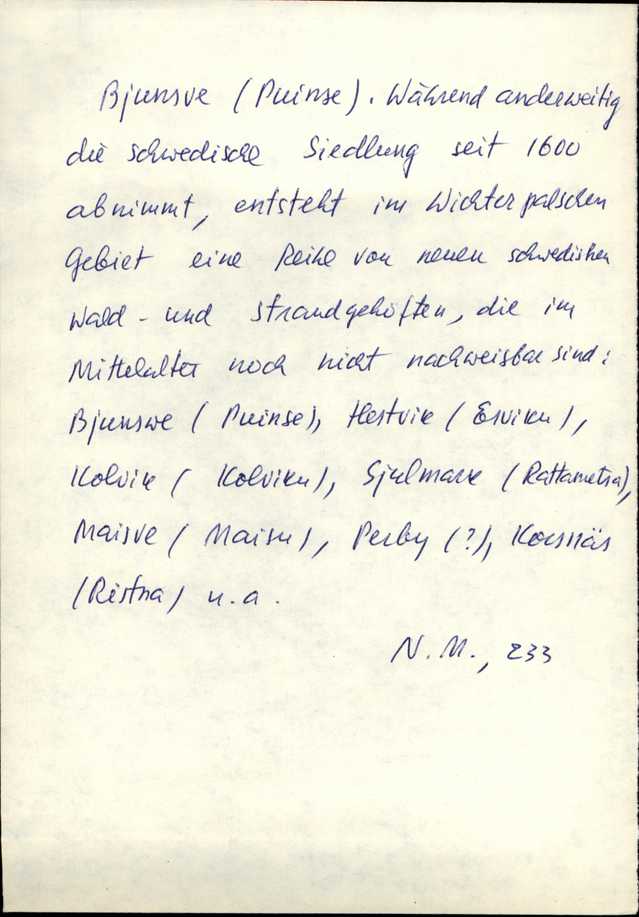 Bjunsve (Puinse). Während anderweitig
die schwedische Siedlung seit 1600
abnimmt, entsteht im Wichterpalschen
Gebiet eine Reihe von neuen schwedischen
Wald- und Strandgehöften, die im
Mittelalter noch nicht nachweisbar sind:
Bjunswe (Puinse), Hestvik (Esviku),
Kolvik (Kolviku), Sjulmark (Rattametsa),
Maisve (Maisu), Perby (?), Korsnäs
(Ristna) u.a.
N.M., 233